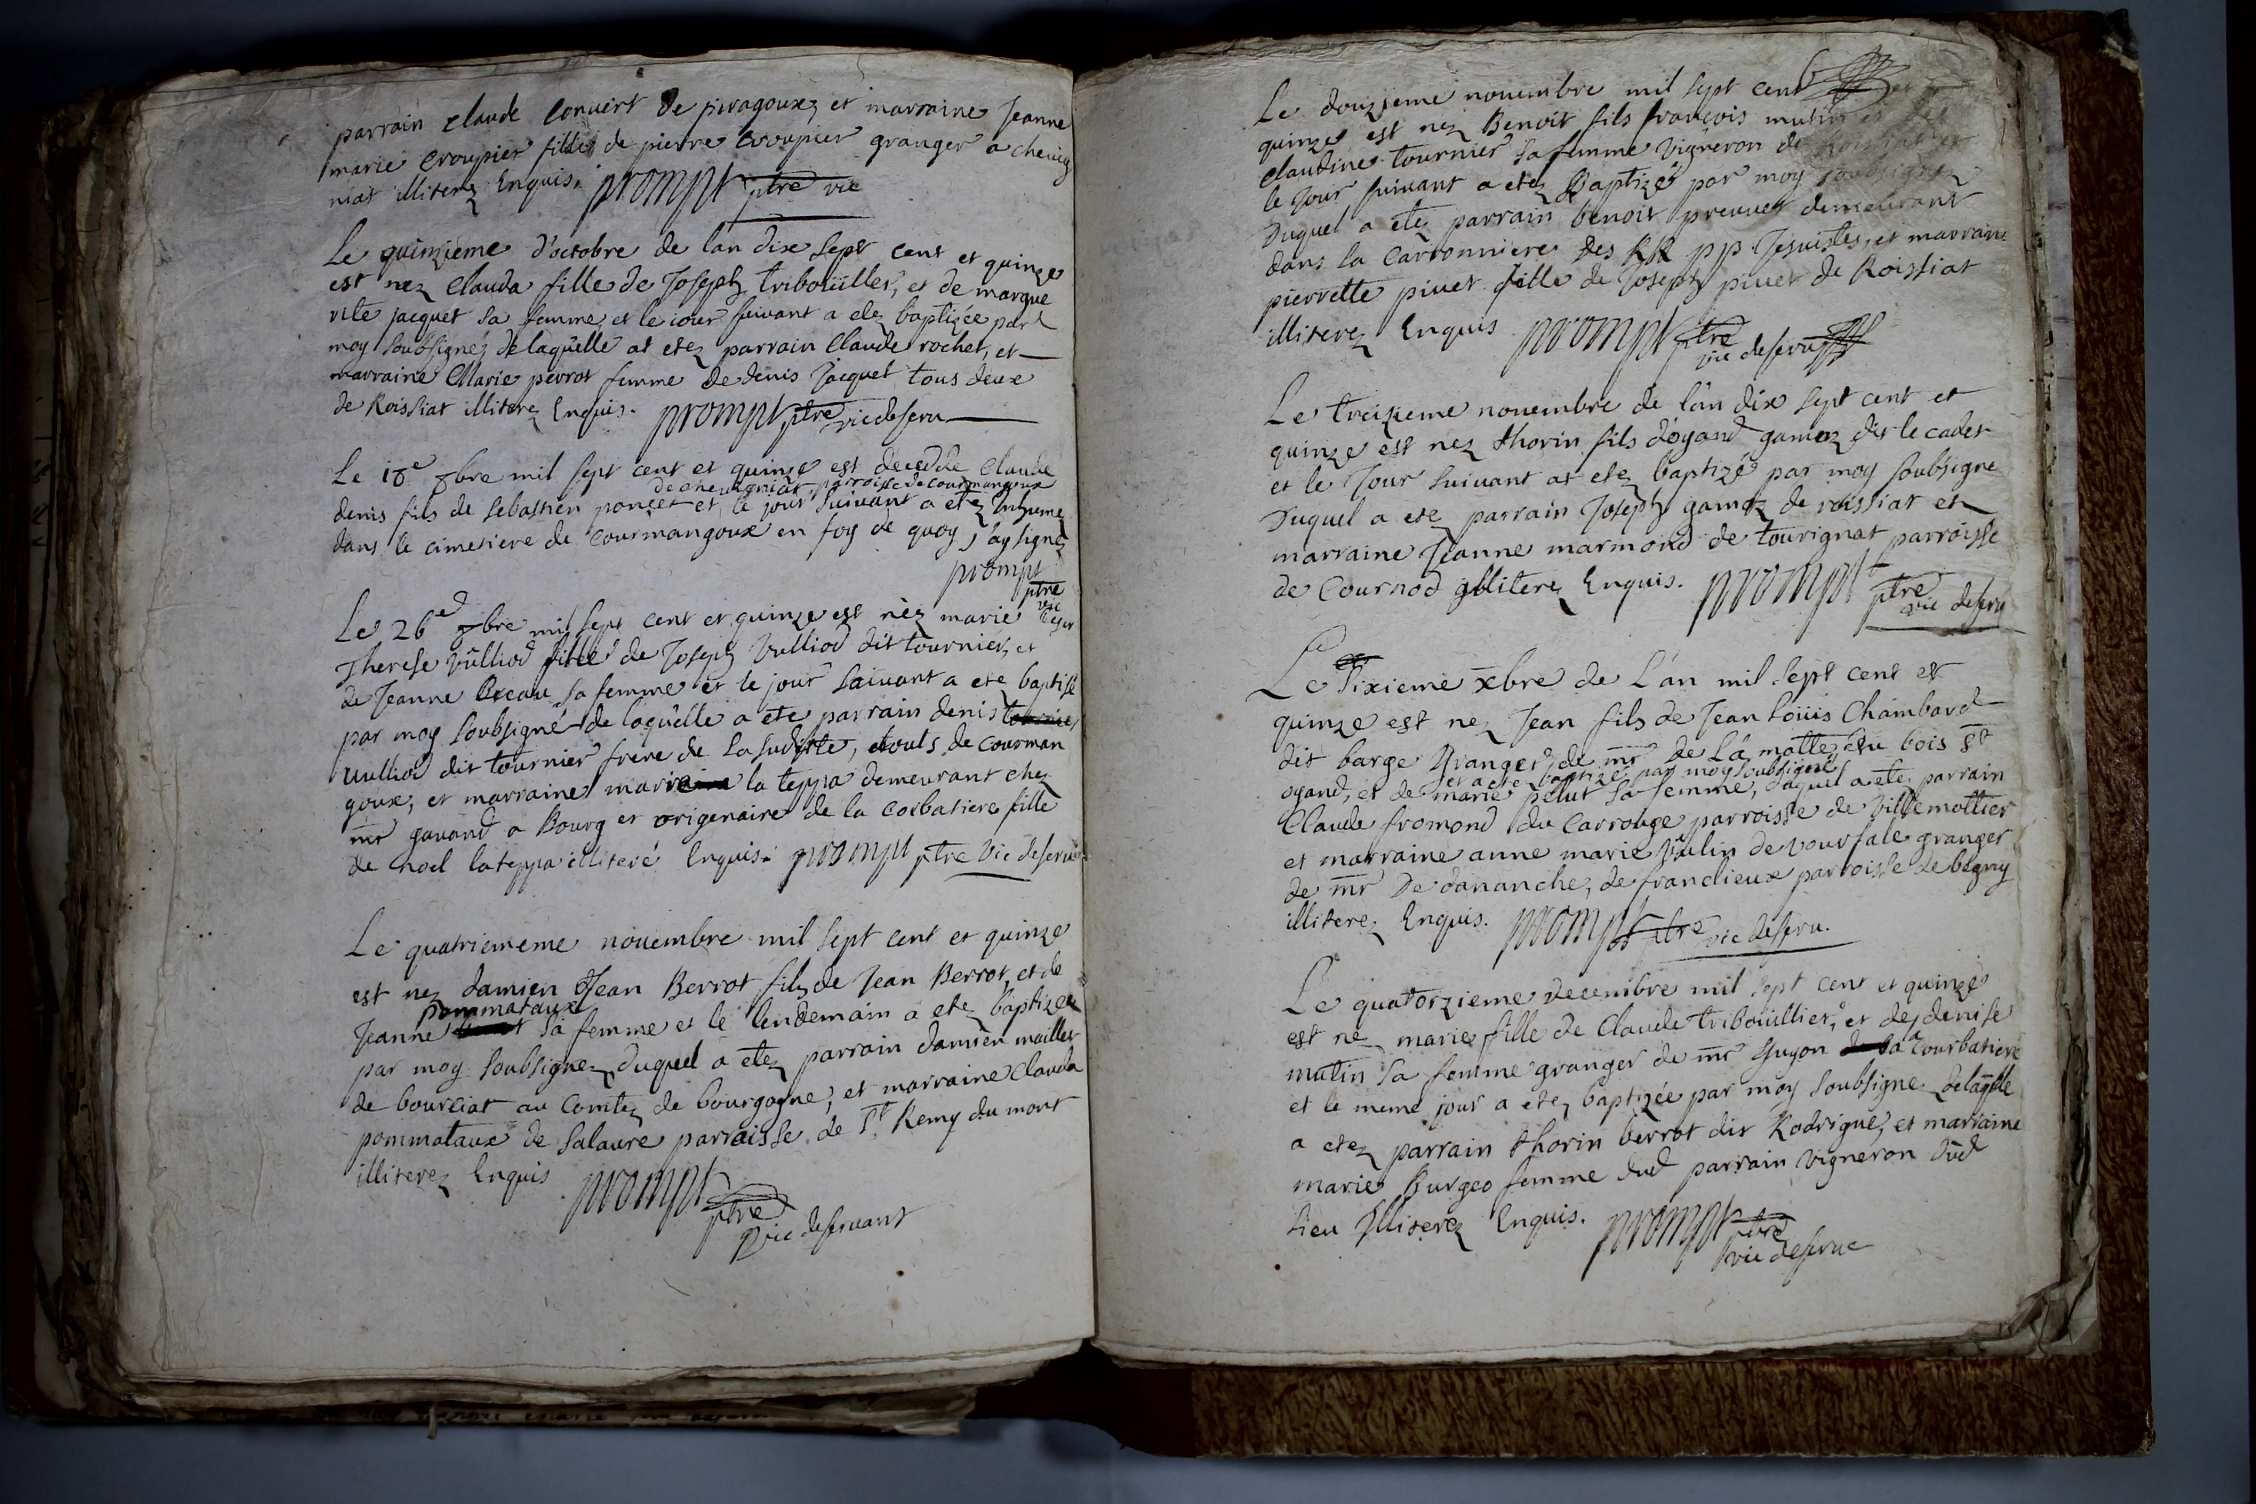 parrain claude Convert de piragoux, et marraine Jeanne
marie croupier fille de pierre croupier granger a cheuig
niat illiterez Enquis. prompt ptre vic
Le quinzieme d'octobre de lan dix sept cent et quinze
est nez Clauda fille de Joseph triboüiller, et de margue
rite jacquet sa femme et le iour suivant a etez baptizée par
moy soubsignez de laquelle at etez parrain Claude rochet, et
marraine Marie perrot femme de denis Jacquet tous deux
de Roissiat illiterez Enquis. prompt ptre vic deseru
Le 18e 8bre mil sept cent et quinze est decedde Claude
de cheuigniat parroisse de courmangoux
denis fils de sebastien poncet et le jour suivant a etez Inhumez
dans le cimetiere de Courmangoux en foy de quoy j'ay signez
prompt ptre
vic deser
Le 26e 8bre mil sept cent et quinze est nèz marie
Therese Vulliod fille de Joseph Vulliod dit tournier, et
de Jeanne Breau sa femme et le jour suivant a ete baptisé
par moy soubsigné de laquelle a ete parrain denis
Vulliod dit tournier frere de la suditte, touts de courman
goux, et marraine marie la teppa demeurant chez
mr gauand a Bourg et origenaire de la Corbatiere fille
de noel lateppa illiteré Enquis. prompt ptre Vic deseru
Le quatriememe nouembre mil sept cent et quinze
est nez damien Jean Berrot fils de Jean Berrot et de
pommataux
Jeanne sa femme et le lendemain a etez baptizee
par moy soubsignez duquel a etez parrain damien maillet
de bourciat au Comtez de bourgogne, et marraine Clauda
pommataux de salaure parroisse de St Remy du mont
illiterez Enquis prompt
ptre
vic deseruant
Le douzieme nouembre mil sept cent
quinze est nez Benoit fils françois mutin
claudine tournier sa femme Vigneron de
le Jour suivant a etez Baptizé par moy soubsignez
Duquel a etez parrain benoit preuuet demeurant
dans la Carronniere des RR pp Jesuistes, et marraine
pierrette piuet fille de Joseph piuet de Roissiat
illiterez Enquis prompt ptre
vic deseru
Le treizieme nouembre de l'an dix sept cent et
quinze est nez thorin fils d'oyand gamoz dit le cadet
et le Jour suivant at etez baptizé par moy soubsigne
Duquel a etez parrain Joseph gamoz de roissiat et
marraine Jeanne marmond de tourignat parroisse
de Cournod illiterez Enquis. prompt ptre
vic deseru
Le Sixieme xbre de L'an mil sept cent et
quinze est nez Jean fils de Jean Loüis Chambard
dit barge Granger de mr de La motte du bois St
et a ete baptizé par moy soubsigné
oyand, et de marie pelut sa femme, duquel a ete parrain
Claude fromond du Carrouge parroisse de Villemottier
et marraine anne marie Vulin de voursale granger
de mr De dananche, de franclieux parroisse de begny
illiterez Enquis. prompt ptre vic deseru.
Le quatorzieme decembre mil sept cent et quinze
est ne marie fille de Claude triboüillier, et de denise
mutin sa femme granger de mr Guyon a la Courbatiere
et le meme jour a etez baptizée par moy soubsigne delaqlle
a etez parrain thorin berrot dit Rodrigue, et marraine
marie Burgeo femme dud parrain Vigneron dud
lieu Illiterez Enquis. prompt ptre
vic deserue